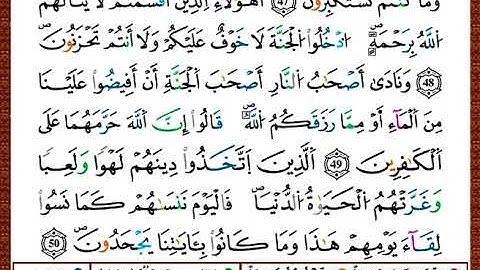 وَمَا كُنتُمْ تَسْتَكْبِرُونَ ٤٧ أَهَٰٓؤُلَآءِ ٱلَّذِينَ أَقْسَمْتُمْ لَا يَنَالُهُمُ
ٱللَّهُ بِرَحْمَةٍۚ ٱدْخُلُوا۟ ٱلْجَنَّةَ لَا خَوْفٌ عَلَيْكُمْ وَلَآ أَنتُمْ تَحْزَنُونَ
٤٨ وَنَادَىٰٓ أَصْحَٰبُ ٱلنَّارِ أَصْحَٰبَ ٱلْجَنَّةِ أَنْ أَفِيضُوا۟ عَلَيْنَا
مِنَ ٱلْمَآءِ أَوْ مِمَّا رَزَقَكُمُ ٱللَّهُۚ قَالُوٓا۟ إِنَّ ٱللَّهَ حَرَّمَهُمَا عَلَى
ٱلْكَٰفِرِينَ ٤٩ ٱلَّذِينَ ٱتَّخَذُوا۟ دِينَهُمْ لَهْوًا وَلَعِبًا
وَغَرَّتْهُمُ ٱلْحَيَوٰةُ ٱلدُّنْيَاۚ فَٱلْيَوْمَ نَنسَىٰهُمْ كَمَا نَسُوا۟
لِقَآءَ يَوْمِهِمْ هَٰذَا وَمَا كَانُوا۟ بِـَٔايَٰتِنَا يَجْحَدُونَ ٥٠